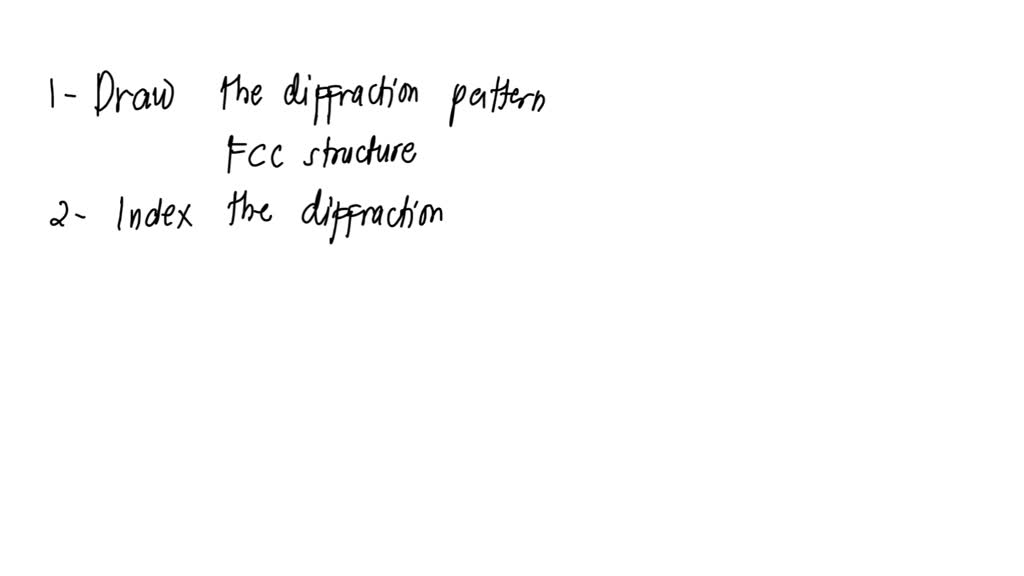 1- Draw the diffraction pattern
FCC structure
2- Index the diffraction